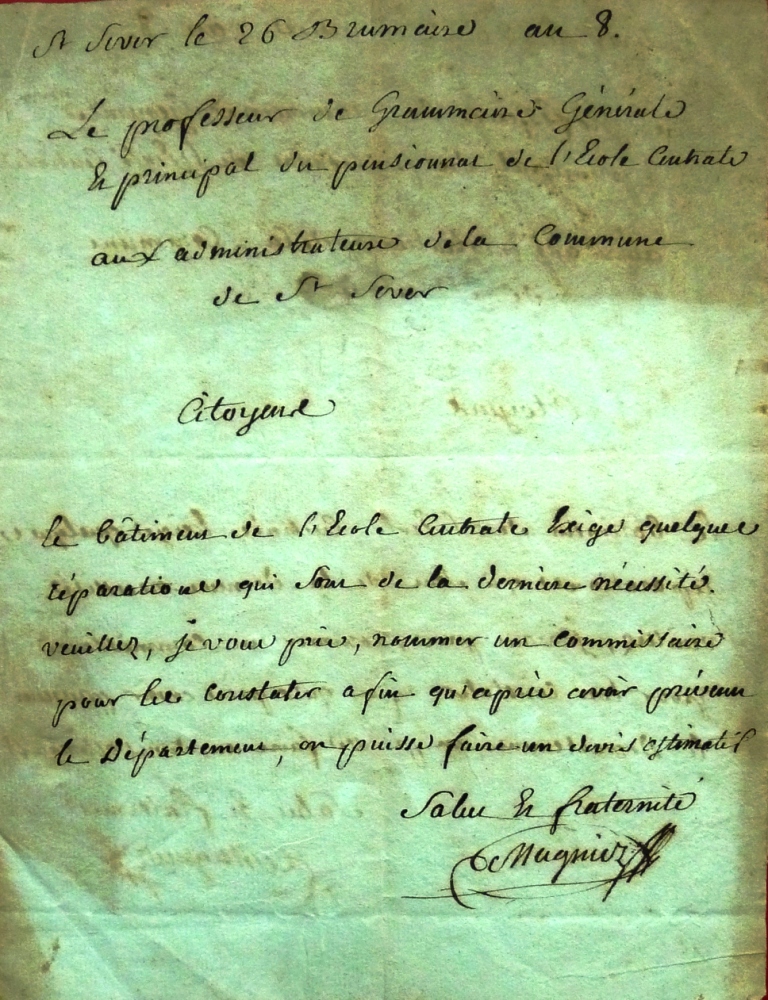 St Sever le 26 Brumaire an 8.
Le professeur de Grammaire Générale
Et principal du pensionnat de l'Ecole Centrale
aux administrateurs de la Commune
de St Sever
Citoyens
le bâtiment de l'Ecole Centrale Exige quelques
réparations qui sont de la dernière nécessité.
veuillez, je vous prie, nommer un commissaire
pour les constater afin qu'après avoir prévenu
le Département, on puisse faire un devis estimatif
Salut Et fraternité